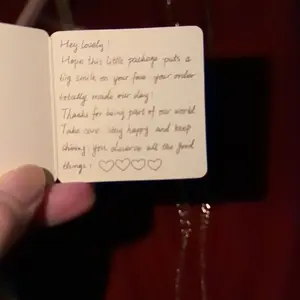 Hey lovely!
Hope this little package puts a
big smile on your face your order
totally made our day!
Thanks for being part of our world
Take care. Stay happy and keep
shining, you deserve all the good
things. ♡♡♡♡